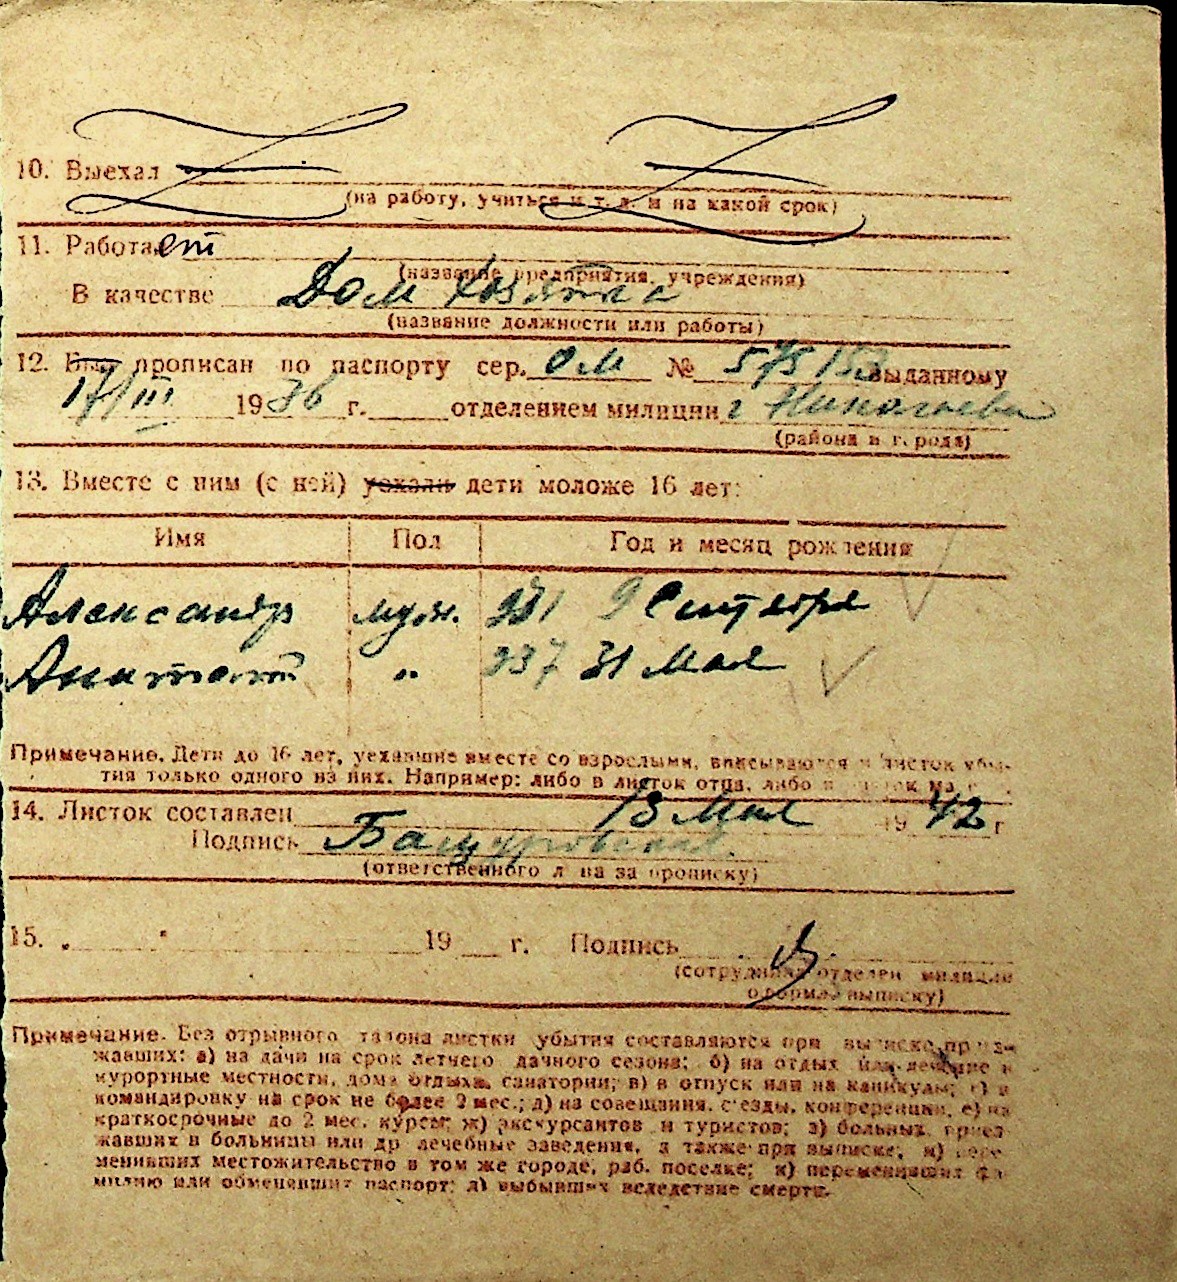 10. Выехал
(на работу, учиться и т. д. и на какой срок)
11. Работает
(название предприятия, учреждения)
В качестве Дом хозяйка
(название должности или работы)
12. Был прописан по паспорту сер. ОМ № 575153 выданному
17/III 1936 г. отделением милиции г Николаева
(района и города)
13. Вместе с ним (с ней) уехали дети моложе 16 лет:
Имя Пол Год и месяц рождения
Александр муж. 931 9 Сентября
Анатолий " 937 31 Мая
Примечание. Дети до 16 лет, уехавшие вместе со взрослыми, вписываются в листок убы-
тия только одного из них. Например: либо в листок отца, либо в листок
14. Листок составлен 13 Мая 1942 г
Подпись
(ответственного лица за прописку)
15. " " 19 г. Подпись
(сотрудника отделен милиции
оформил выписку)
Примечание. Без отрывного талона листки убытия составляются при выписке приез-
жавших: а) на дачи на срок летнего дачного сезона; б) на отдых или лечение в
курортные местности, дома отдыха, санатории; в) в отпуск или на каникулы; г) в
командировку на срок не более 2 мес.; д) на совещания, с'езды, конференции, е) на
краткосрочные до 2 мес. курсы; ж) экскурсантов и туристов; з) больных, приез-
жавших в больницы или др лечебные заведения, а также при выписке; и) пере-
менивших местожительство в том же городе, раб. поселке; к) переменивших фа-
милию или обменявших паспорт; л) выбывших вследствие смерти.